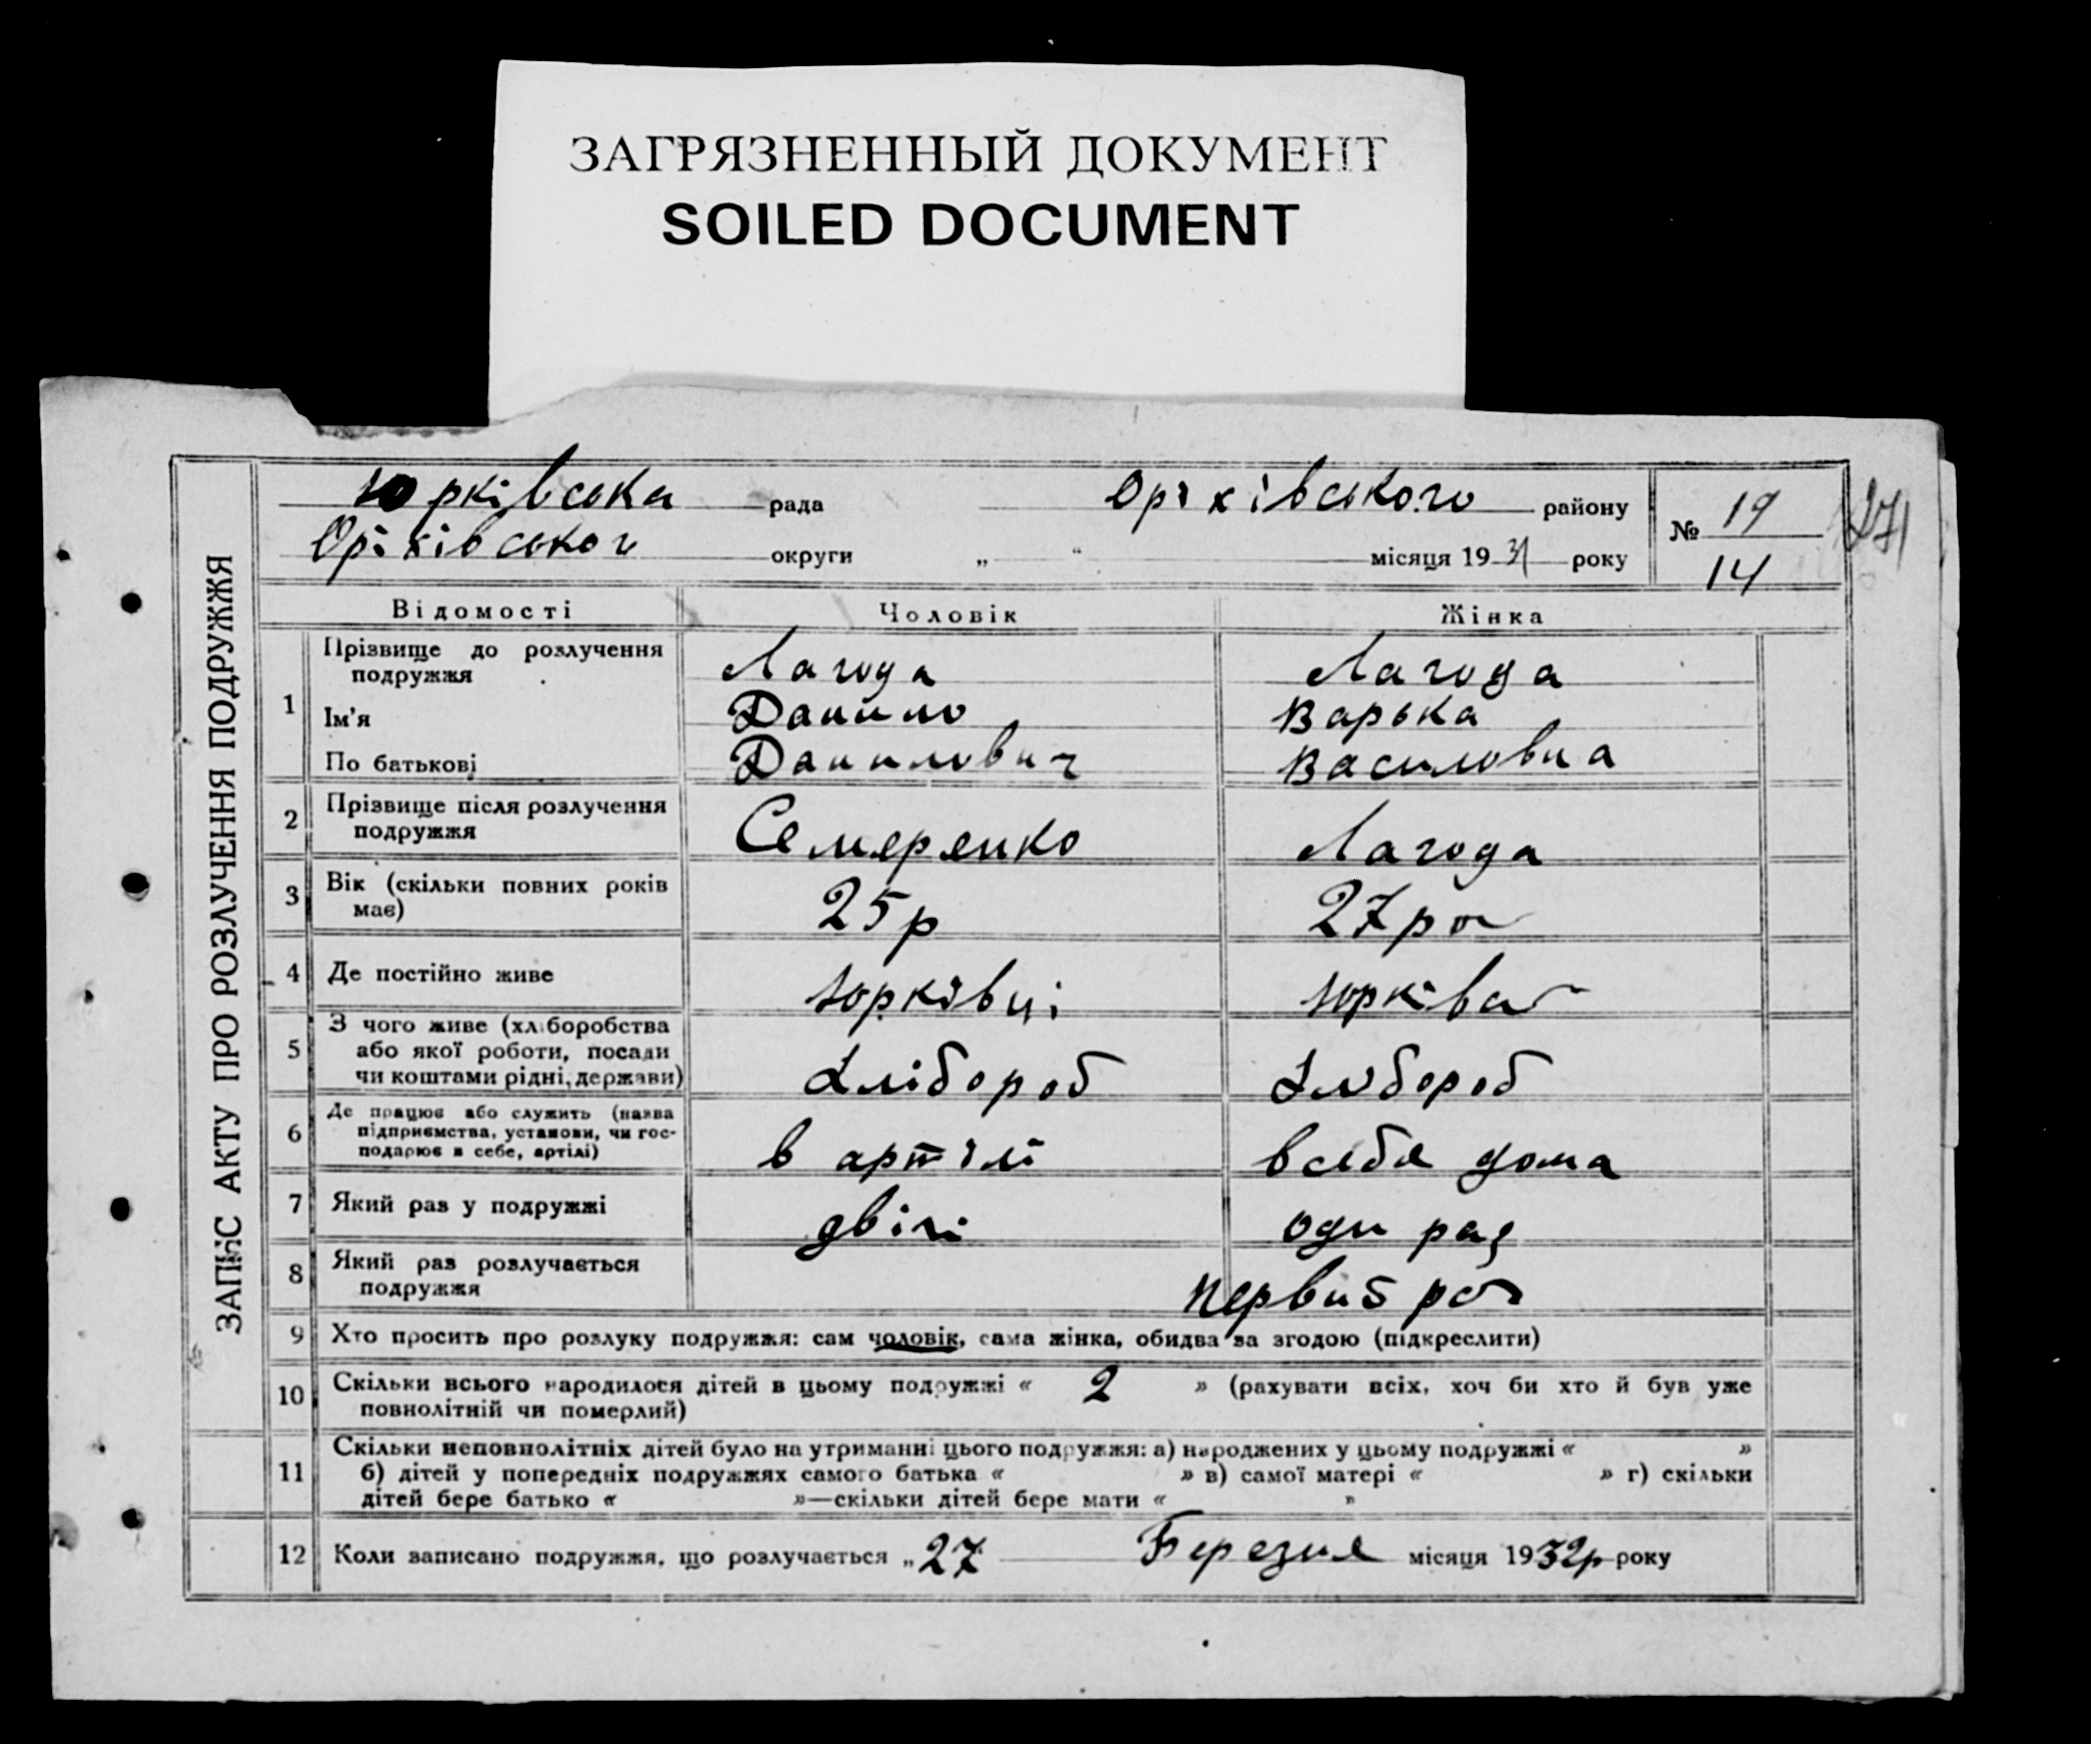 ЗАГРЯЗНЕННЫЙ ДОКУМЕНТ
SOILED DOCUMENT
Юрківська рада Оріхівського району
№ 19
14
Оріхівськог округи „ “ місяця 1931 року
ЗАПИС АКТУ ПРО РОЗЛУЧЕННЯ ПОДРУЖЖЯ
Відомості Чоловік Жінка
1 Прізвище до розлучення подружжя Лагода Лагода
Ім'я Данило Варька
По батькові Данилович Василовна
2 Прізвище після розлучення подружжя Семеренко Лагода
3 Вік (скільки повних років має) 25р 27 ро
4 Де постійно живе Юрківці
5 З чого живе (хліборобства
або якої роботи, посади
чи коштами рідні, держави) Хлібороб Хлібороб
6 Де працює або служить (назва
підприємства, установи, чи гос-
подарює в себе, артілі) в артілі в себе дома
7 Який раз у подружжі двічі оди раз
8 Який раз розлучається
подружжя первий раз
9 Хто просить про розлуку подружжя: сам чоловік, сама жінка, обидва за згодою (підкреслити)
10 Скільки всього народилося дітей в цьому подружжі « 2 » (рахувати всіх, хоч би хто й був уже
повнолітній чи померлий)
11 Скільки неповнолітніх дітей було на утриманні цього подружжя: а) народжених у цьому подружжі « »
б) дітей у попередніх подружжях самого батька « » в) самої матері « » г) скільки
дітей бере батько « »—скільки дітей бере мати « »
12 Коли записано подружжя, що розлучається „ 27 Березня місяця 1932р року